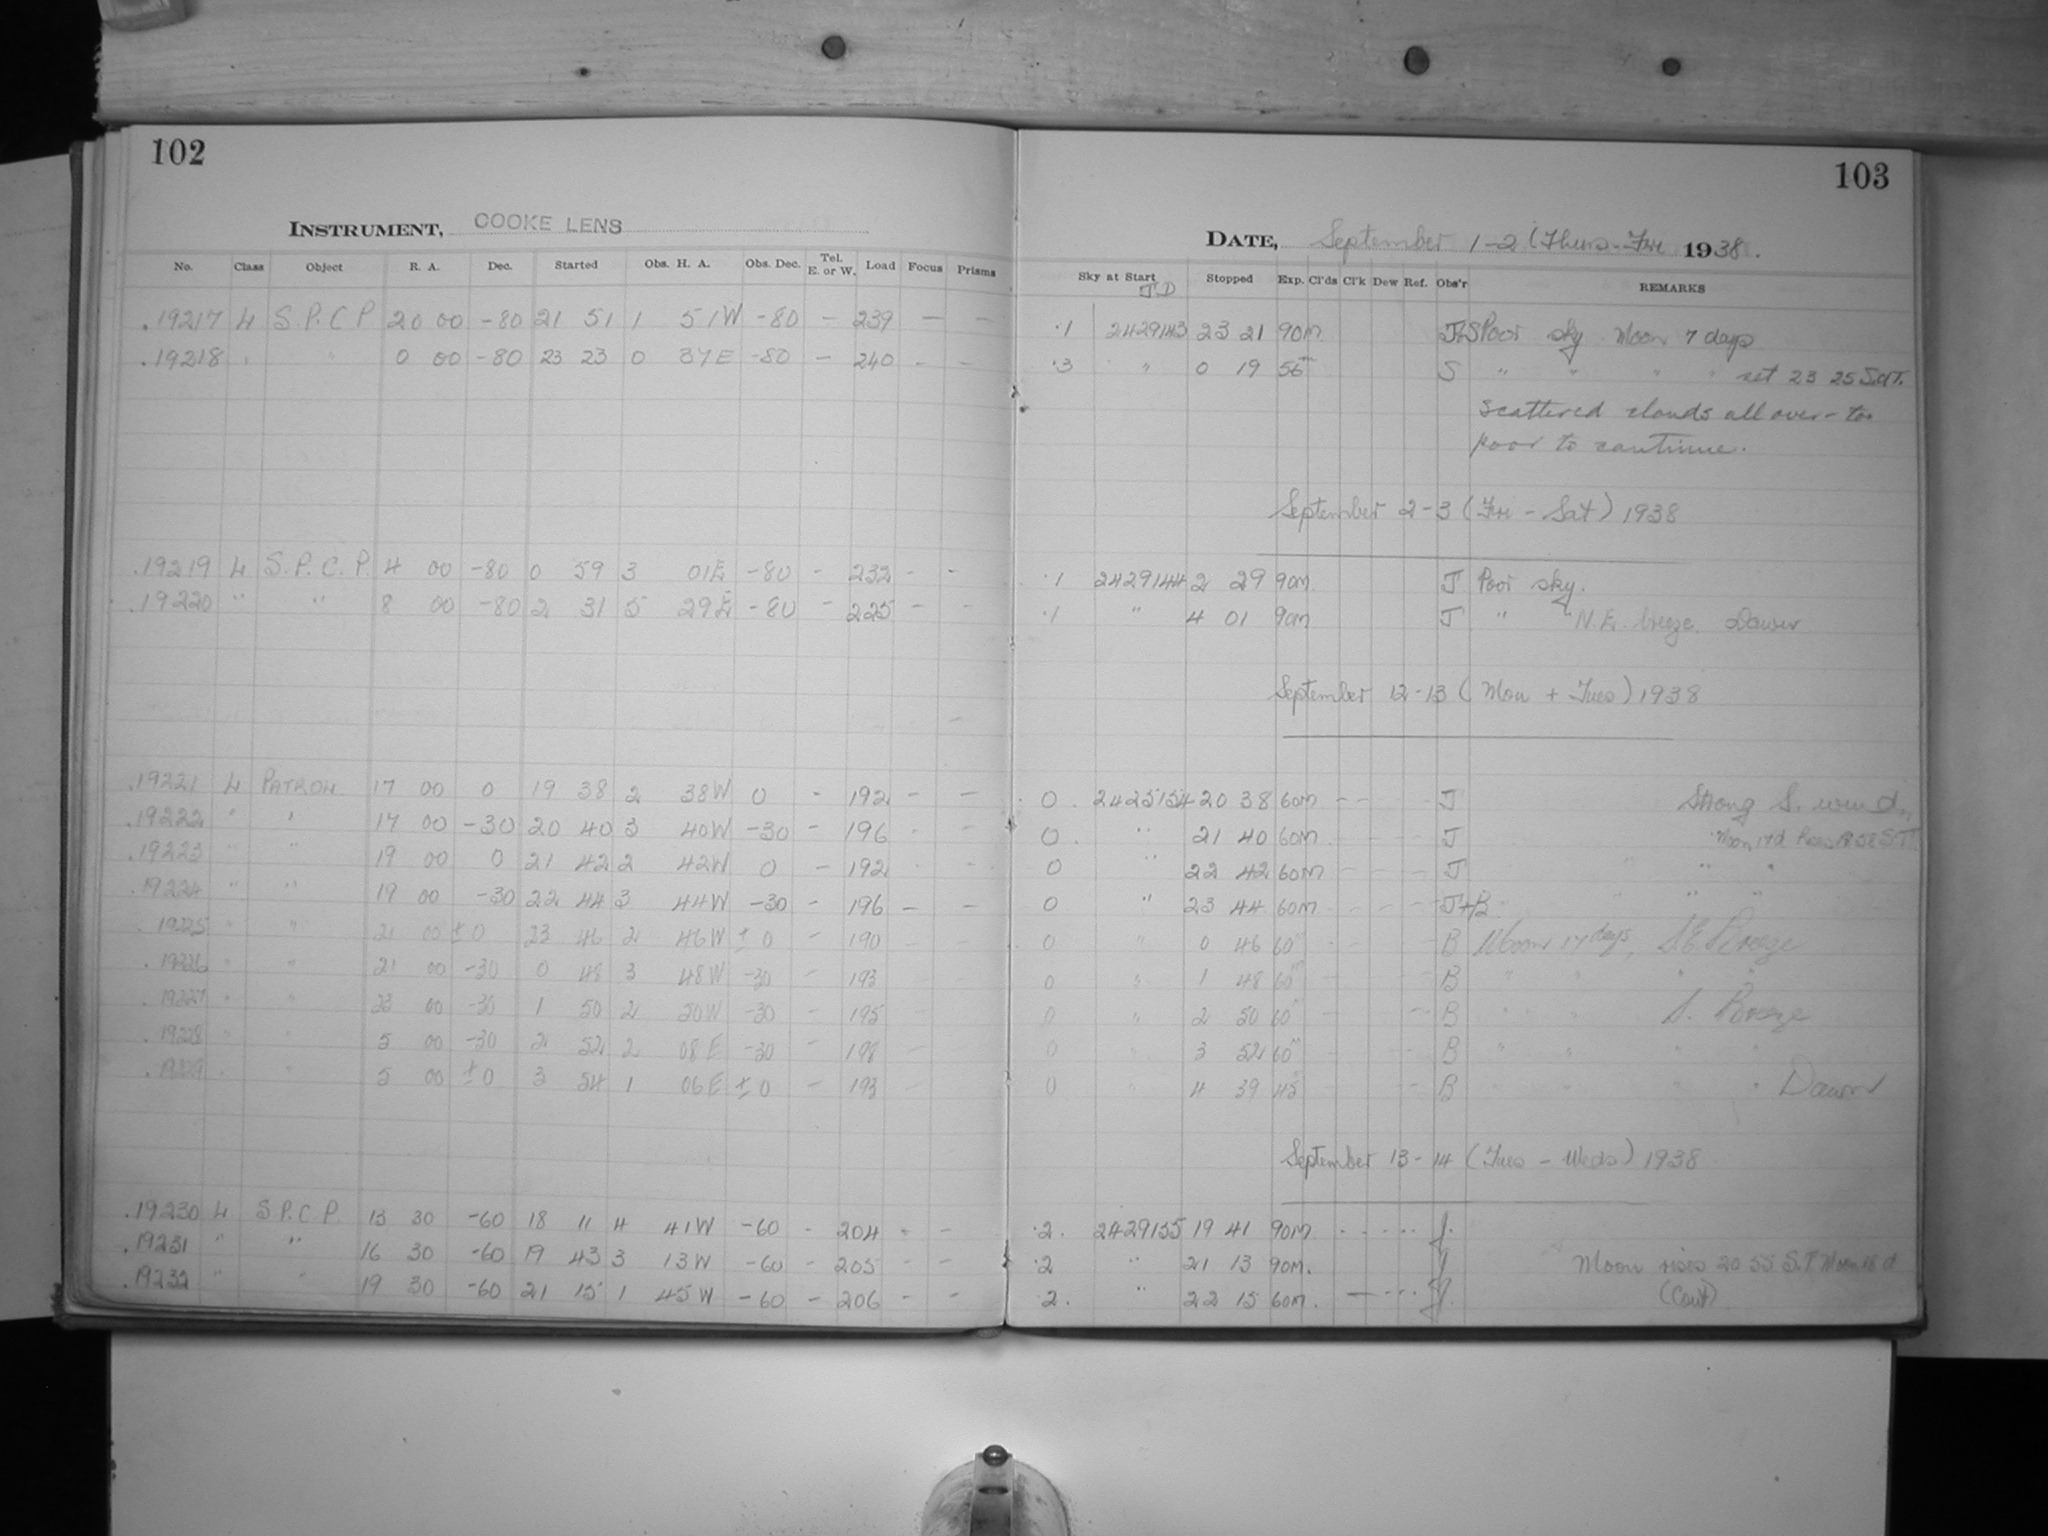 102
INSTRUMENT, COOKE LENS
No. Class Object R. A. Dec. Started Obs. H. A. Obs. Dec. Tel. E. or W. Load Focus Prisms
.19217 4 S.P.C.P 20 00 -80 21 51 1 51W -80 - 239 - -
.19218 " " 0 00 -80 23 23 0 37E -80 - 240 - -
.19219 4 S.P.C.P. 4 00 -80 0 59 3 01E -80 - 232 - -
.19220 " " 8 00 -80 2 31 5 29E -80 - 225 - -
.19221 4 PATROL 17 00 0 19 38 2 38W 0 - 192 - -
.19222 " " 17 00 -30 20 40 3 40W -30 - 196 - -
.19223 " " 19 00 0 21 42 2 42W 0 - 192 - -
.19224 " " 19 00 -30 22 44 3 44W -30 - 196 - -
.19225 " " 21 00 ±0 23 46 2 46W ±0 - 190
.19226 " " 21 00 -30 0 48 3 48W -30 - 193
.19227 " " 23 00 -30 1 50 2 50W -30 - 195
.19228 " " 5 00 -30 2 52 2 08E -30 - 198
.19229 " " 5 00 ±0 3 54 1 06E ±0 - 193
.19230 4 S.P.C.P. 13 30 -60 18 11 4 41W -60 - 204 - -
.19231 " " 16 30 -60 19 43 3 13W -60 - 205 - -
.19232 " " 19 30 -60 21 15 1 45W -60 - 206 - -
103
DATE, September 1-2 (Thurs-Fri 1938.
Sky at Start Stopped Exp. Cl'ds Cl'k Dew Ref. Obs'r REMARKS
JD
.1 2429143 23 21 90m J+S Poor sky Moon 7 days
.3 " 0 19 56m S " " " " set 23 25 S.T.
Scattered clouds all over - too
poor to continue.
September 2-3 (Fri - Sat) 1938
.1 2429144 2 29 90m J Poor sky.
.1 " 4 01 90m J " " N.E. breeze. Dawn
September 12-13 (Mon + Tues) 1938
0. 2425154 20 38 60m - - J Strong S. wind.
0. " 21 40 60m J Moon 17d Rises
0 " 22 42 60m J " "
0 " 23 44 60m J+B " "
0 " 0 46 60m B Moon 17 days, S.E. Breeze
0 " 1 48 60m B " " " "
0 " 2 50 60m B " " S. Breeze
0 " 3 52 60m B " " " "
0 " 4 39 45 B " " " " Dawn
September 13-14 (Tues - Weds) 1938
.2. 2429155 19 41 90m. - - - - J.
.2 " 21 13 90m. J Moon rises 20 55 S.T Moon 18 d
.2. " 22 15 60m. - - - - J. (Cont)